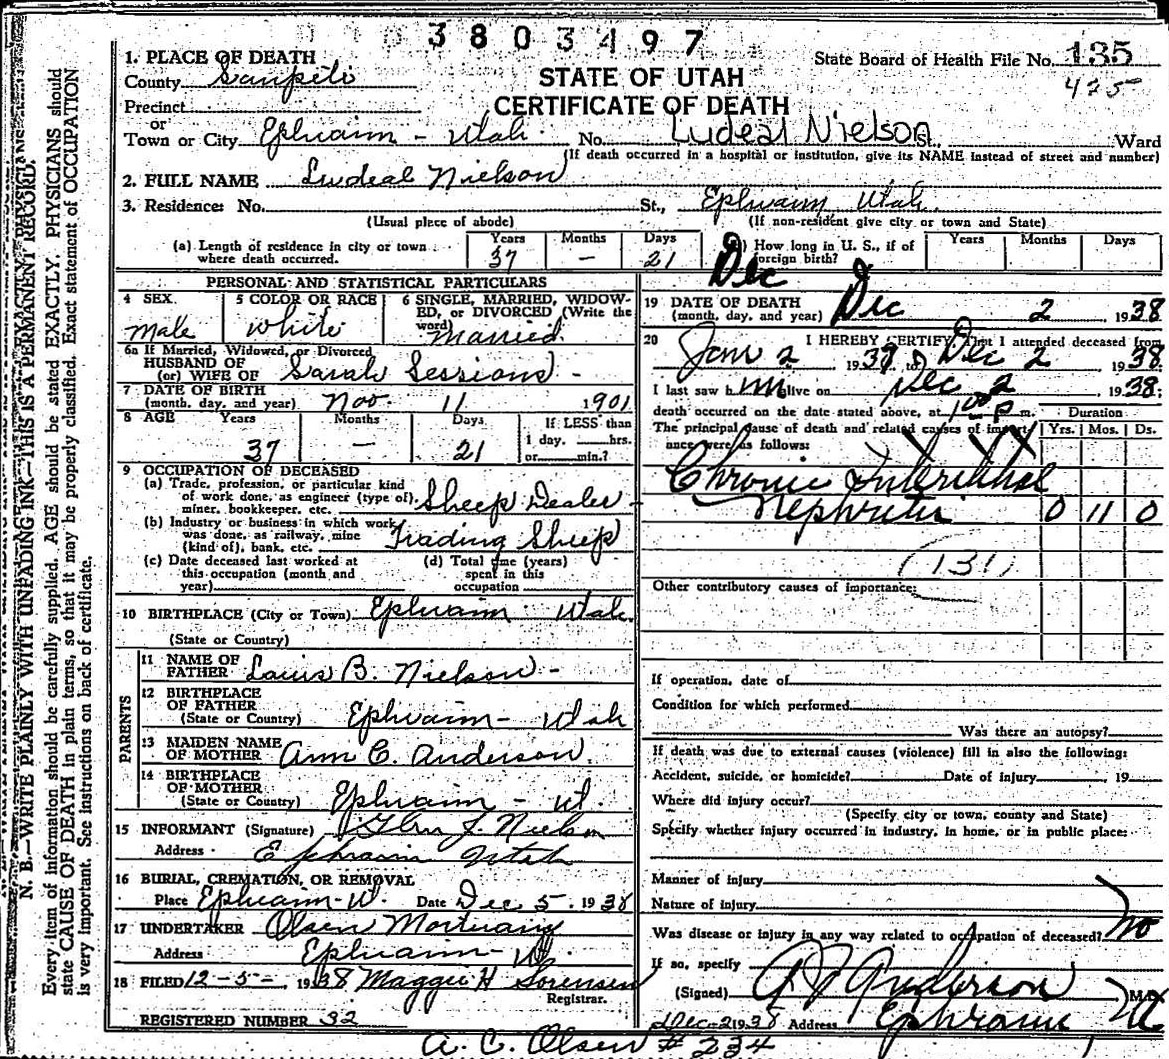 3803497
State Board of Health File No. 135
425
STATE OF UTAH
CERTIFICATE OF DEATH
1. PLACE OF DEATH
County Sanpete
Precinct
or
Town or City Ephraim - Utah. No. Ludeal Nielson St., Ward
(If death occurred in a hospital or institution, give its NAME instead of street and number)
2. FULL NAME Ludeal Nielson
3. Residence: No. St., Ephraim Utah.
(Usual place of abode) (If non-resident give city or town and State)
(a) Length of residence in city or town where death occurred. Years 37 Months — Days 21
How long in U. S., if of foreign birth? Years Months Days
Dec
PERSONAL AND STATISTICAL PARTICULARS
4 SEX. Male
5 COLOR OR RACE White
6 SINGLE, MARRIED, WIDOWED, or DIVORCED (Write the word) Married.
6a If Married, Widowed, or Divorced
HUSBAND OF
(or) WIFE OF Sarah Sessions -
7 DATE OF BIRTH
(month, day, and year) Nov. 11 1901
8 AGE Years 37 Months — Days 21
If LESS than
1 day, hrs.
or min.?
9 OCCUPATION OF DECEASED
(a) Trade, profession, or particular kind
of work done, as engineer (type of),
miner, bookkeeper, etc. Sheep Dealer -
(b) Industry or business in which work
was done, as railway, mine
(kind of), bank, etc. Trading Sheep
(c) Date deceased last worked at
this occupation (month and
year)
(d) Total time (years)
spent in this
occupation
10 BIRTHPLACE (City or Town) Ephraim Utah.
(State or Country)
PARENTS
11 NAME OF
FATHER Louis B. Nielson -
12 BIRTHPLACE
OF FATHER
(State or Country) Ephraim - Utah
13 MAIDEN NAME
OF MOTHER Ann C. Anderson.
14 BIRTHPLACE
OF MOTHER
(State or Country) Ephraim - Ut.
15 INFORMANT (Signature) J. Nielson
Address Ephraim Utah
16 BURIAL, CREMATION, OR REMOVAL
Place Ephraim - Ut. Date Dec. 5. 1938
17 UNDERTAKER Olsen Mortuary
Address Ephraim - Ut.
18 FILED 12-5- 1938 Maggie H Sorensen
Registrar.
REGISTERED NUMBER 32
A. C. Olsen # 234
19 DATE OF DEATH
(month, day, and year) Dec 2 1938
20 I HEREBY CERTIFY, That I attended deceased from
Jan 2 1938 to Dec 2 1938
I last saw him alive on Dec 2 1938;
death occurred on the date stated above, at 1 00 p m.
The principal cause of death and related causes of importance were as follows:
Duration
Yrs. Mos. Ds.
Chronic Interstitial
Nephritis 0 11 0
(131)
Other contributory causes of importance:
If operation, date of
Condition for which performed
Was there an autopsy?
If death was due to external causes (violence) fill in also the following:
Accident, suicide, or homicide? Date of injury , 19
Where did injury occur?
(Specify city or town, county and State)
Specify whether injury occurred in industry, in home, or in public place:
Manner of injury
Nature of injury
Was disease or injury in any way related to occupation of deceased? No
If so, specify
(Signed) Anderson M.D.
Dec-2 1938 Address Ephraim Ut
N. B.—WRITE PLAINLY WITH UNFADING INK—THIS IS A PERMANENT RECORD.
Every item of information should be carefully supplied. AGE should be stated EXACTLY. PHYSICIANS should
state CAUSE OF DEATH in plain terms, so that it may be properly classified. Exact statement of OCCUPATION
is very important. See instructions on back of certificate.